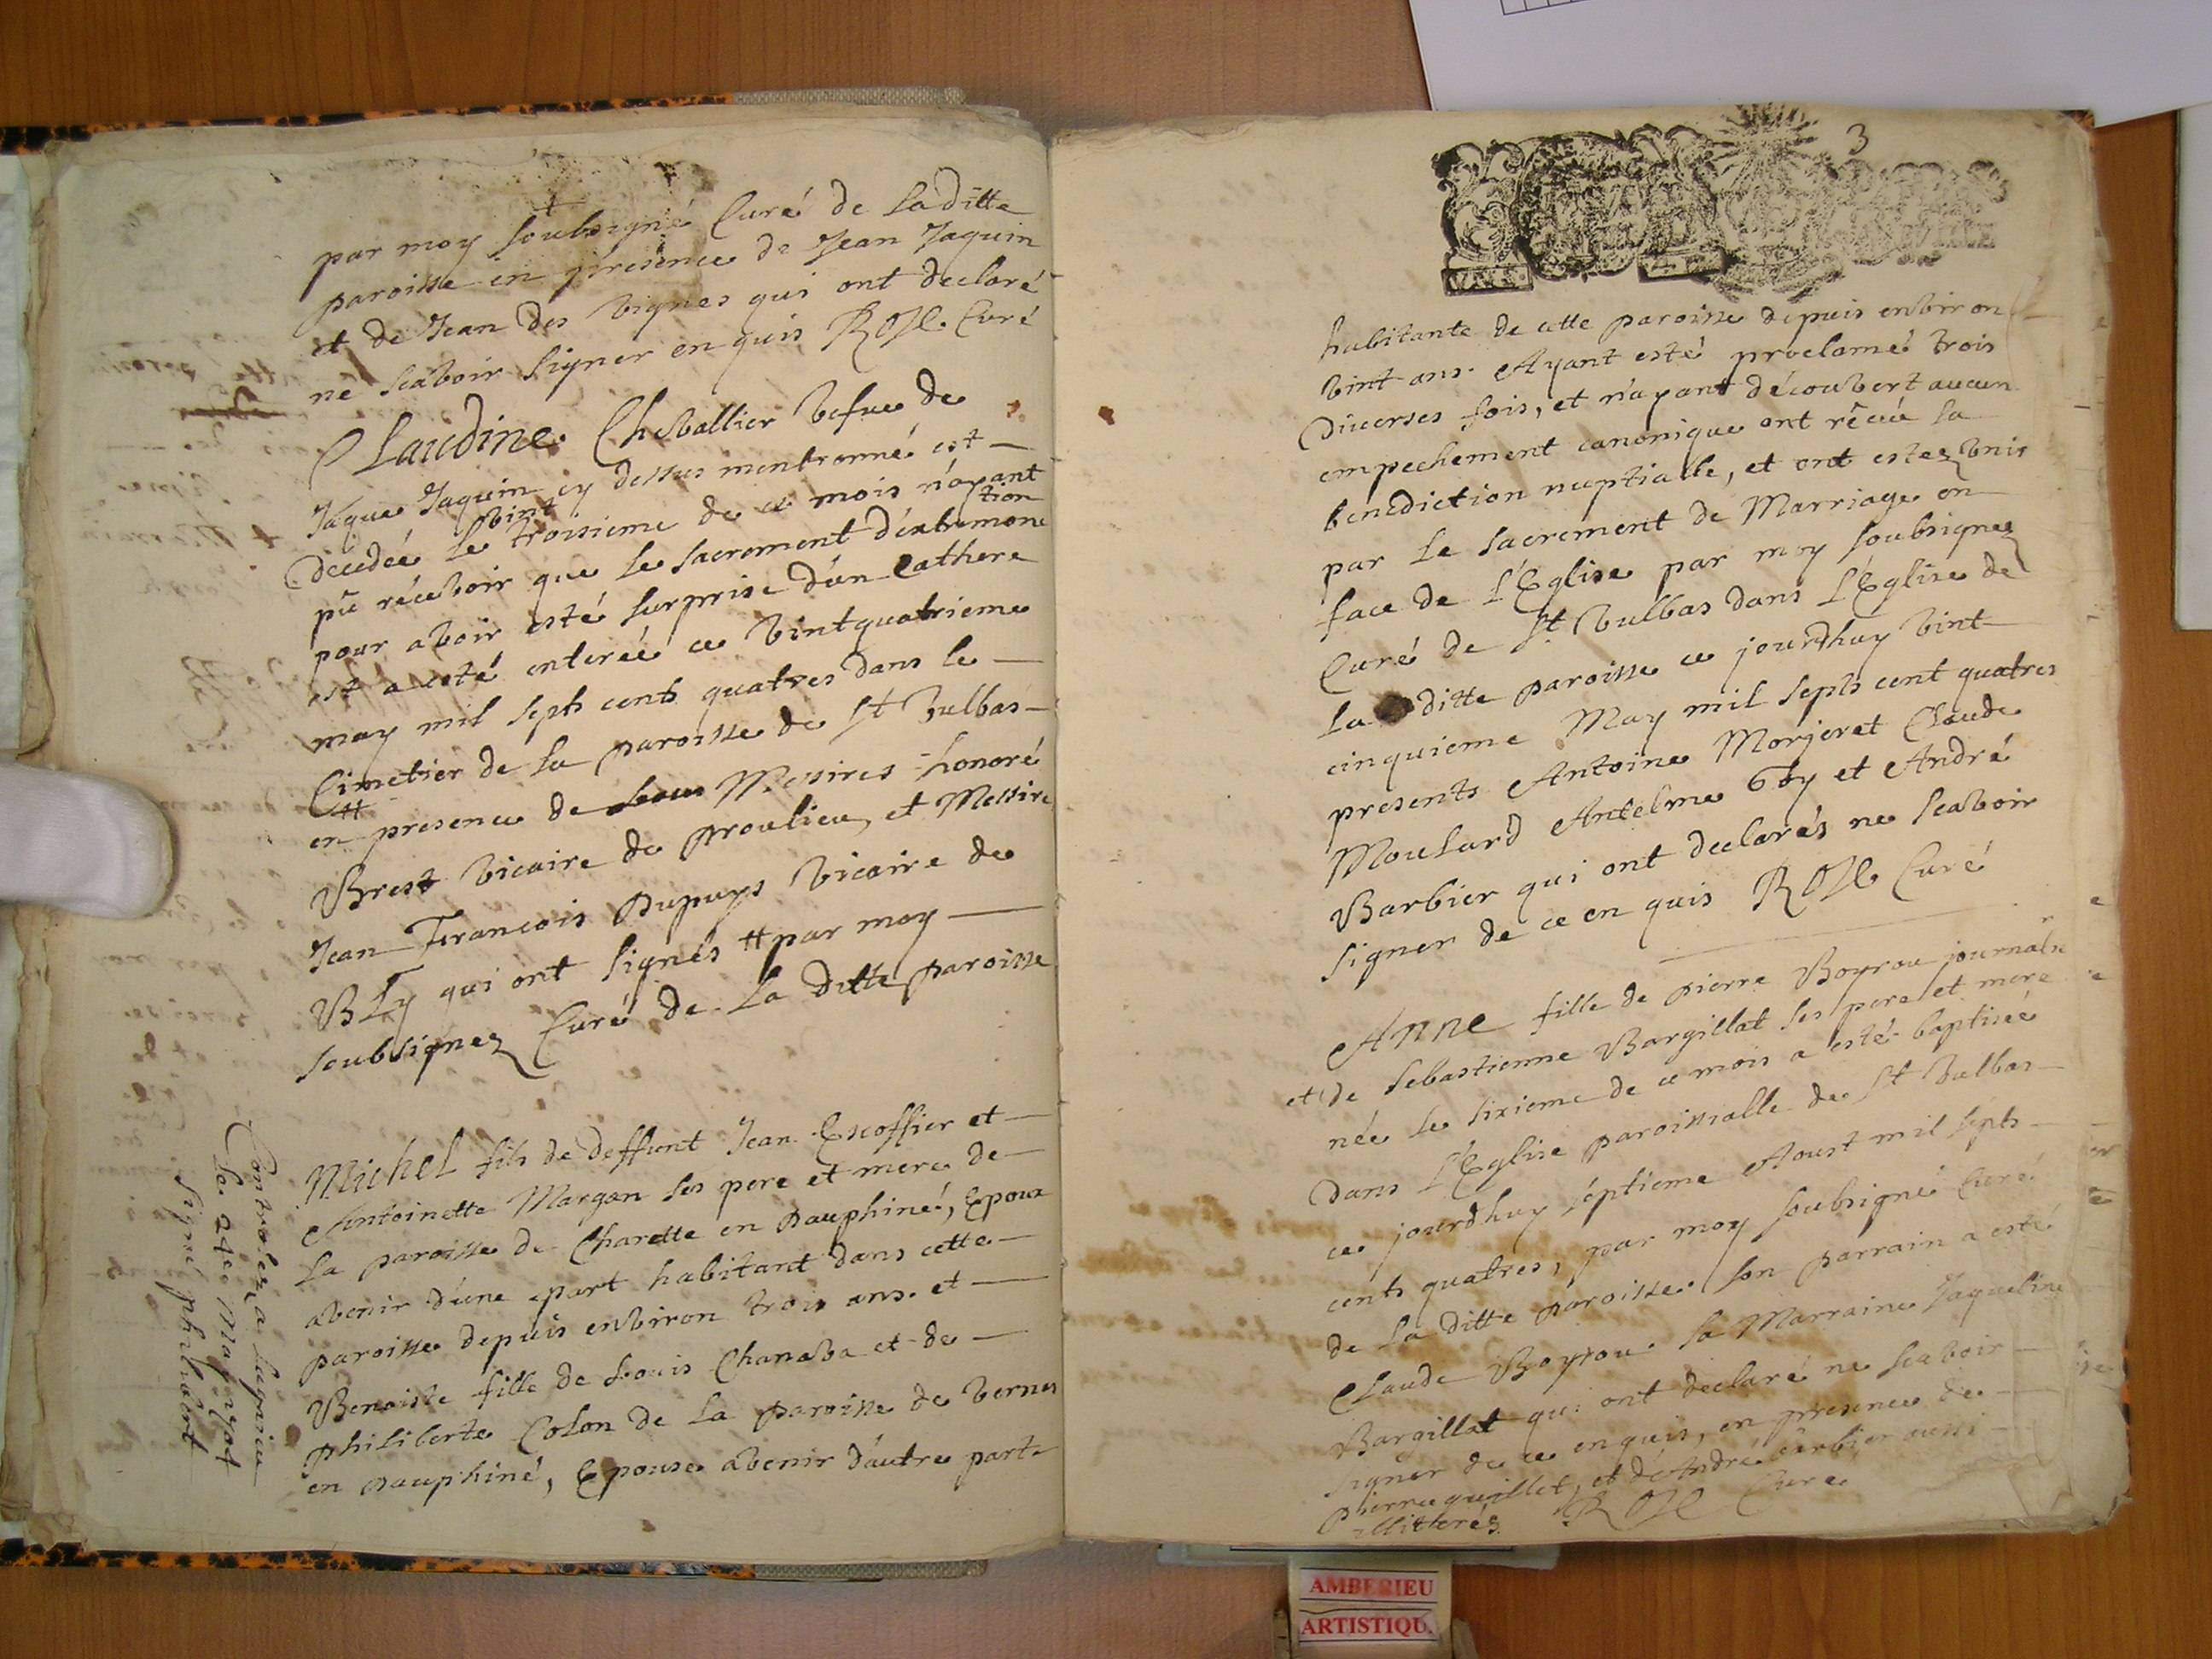 par moy soubsigné Curé de laditte
paroisse en presence de Jean Jaquin
et de Jean des vignes qui ont declaré
ne scavoir signer enquis ROZE Curé
Claudine Chevallier vefue de
Jaque Jaquin cy dessus mentionné est
decedée le vint troisieme de ce mois n'ayant
pû récevoir que le sacrement d'extremonction
pour avoir esté surprise d'un Cathere
et a esté enterée ce vintquatrieme
may mil septs cents quatres dans le
Cimetier de la paroisse de St Vulbas
en presence de Messires honoré
Brest vicaire de proulieu, et Messire
Jean Francois Dupuys vicaire de
BLy qui ont signés # par moy
soubsignez Curé de la ditte paroisse
Michel fils de deffunt Jean Escoffier et
Antoinette Margan ses pere et mere de
la paroisse de Charette en Dauphiné, Epoux
avenir d'une part habitant dans cette
paroisse depuis environ trois ans. et
Benoiste fille de Louis Chanava et de
philiberte Colon de la paroisse de vernas
en Dauphiné, Epouse avenir d'autre part
Controlez a Lagnieu
Le 24e May 1704
Signé philibert
3
habitante de cette paroisse depuis environ
vint ans. Ayant esté proclamé trois
Diverses fois, et n'ayant découvert aucun
empechement canonique ont récue la
benediction nuptialle, et ont estez unis
par le sacrement de Marriage en
face de l'Eglise par moy soubsignez
Curé de St Vulbas dans l'Eglise de
la ditte paroisse ce jourdhuy vint
cinquieme May mil septs cent quatres
presents Antoine Morjeret Claude
Moulard Antelme Goy et André
Barbier qui ont declarés ne scavoir
signer de ce enquis ROZE Curé
Anne fille de pierre Boyrou journalier
et de Sebastienne Bargillat ses pere et mere
née le sixieme de ce mois a esté baptisée
dans l'Eglise paroissialle de St Vulbas
ce jourdhuy séptieme Aoust mil septs
cents quatres, par moy soubsigné Curé
de la ditte paroisse. son parrain a esté
Claude Boyrou. sa Marraine Jaqueline
Bargillat qui ont declaré ne scavoir
signer de ce enquis, en presence de
pierre quillet, et d'André berbier aussi
illiterés ROZE Cure
AMBERIEU
ARTISTIQU